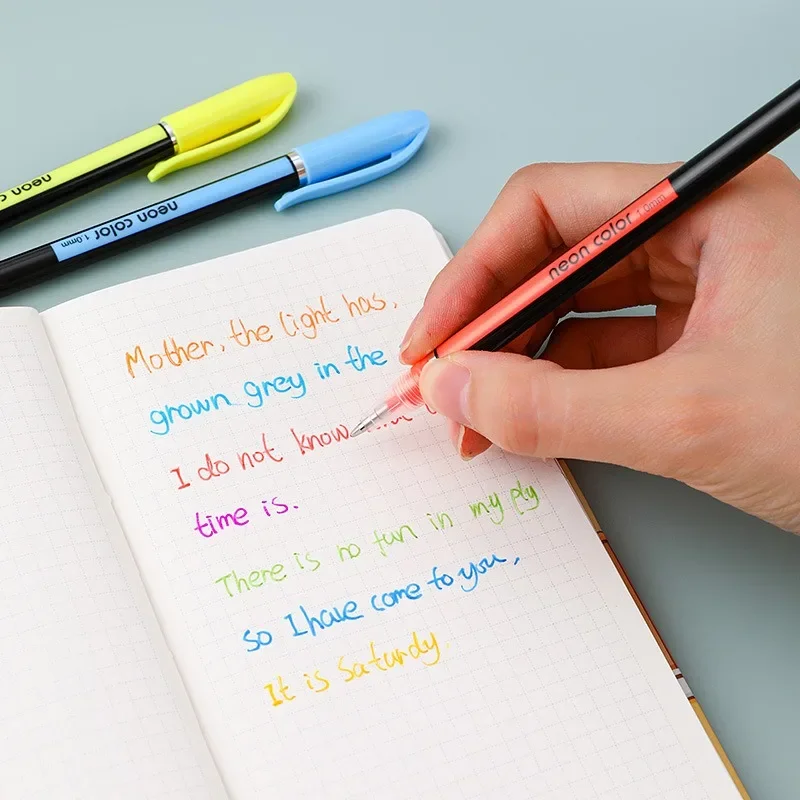 neon c
neon color 1.0mm
neon color 1.0mm
Mother, the light has,
grown grey in the
I do not know
time is.
There is no fun in my ply
so I have come to you,
It is Saturdy.